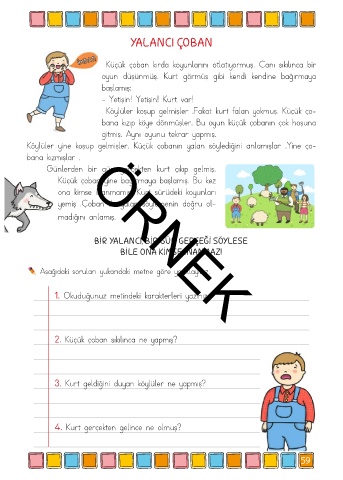 YALANCI ÇOBAN
Küçük çoban kırda koyunlarını otlatıyormuş. Canı sıkılınca bir
oyun düşünmüş. Kurt görmüş gibi kendi kendine bağırmaya
başlamış:
- Yetişin! Yetişin! Kurt var!
Köylüler koşup gelmişler .Fakat kurt falan yokmuş. Küçük ço-
bana kızıp köye dönmüşler. Bu oyun küçük çobanın çok hoşuna
gitmiş. Aynı oyunu tekrar yapmış.
Köylüler yine koşup gelmişler. Küçük çobanın yalan söylediğini anlamışlar .Yine ço-
bana kızmışlar .
Günlerden bir gün kurt çıkıp gelmiş.
Küçük çoban yine bağırmaya başlamış. Bu kez
ona kimse inanmamış. Kurt sürüdeki koyunları
yemiş. Çoban yalan söylemenin doğru ol-
madığını anlamış.
BİR YALANCI BİR GÜN GERÇEĞİ SÖYLESE
BİLE ONA KİMSE İNANMAZ!
Aşağıdaki soruları yukarıdaki metne göre
ÖRNEK
1. Okuduğunuz metindeki karakterleri
2. Küçük çoban sıkılınca ne yapmış?
3. Kurt geldiğini duyan köylüler ne yapmış?
4. Kurt gerçekten gelince ne olmuş?
59